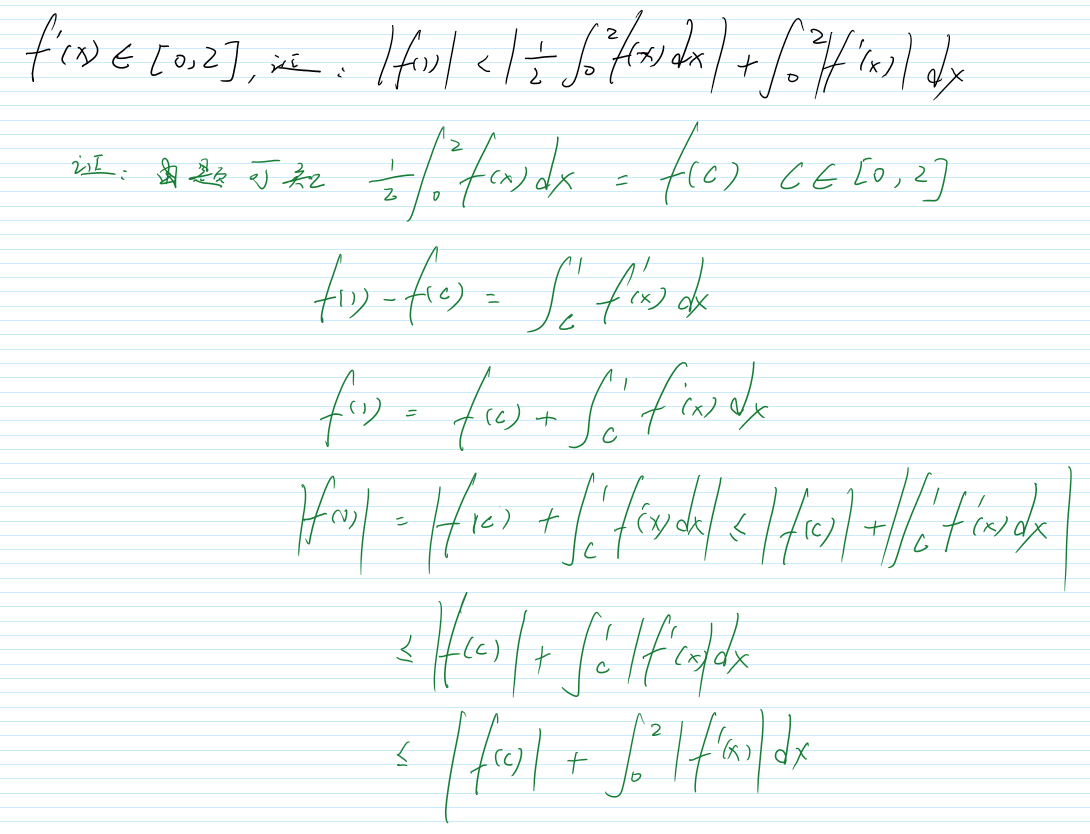 f'(x) ∈ [0,2], 证: |f(1)| < |1/2 ∫₀² f(x) dx| + ∫₀² |f'(x)| dx
证: 由题可知 1/2 ∫₀² f(x) dx = f(c) c ∈ [0,2]
f(1) - f(c) = ∫_c^1 f'(x) dx
f(1) = f(c) + ∫_c^1 f'(x) dx
|f(1)| = |f(c) + ∫_c^1 f'(x) dx| ≤ |f(c)| + |∫_c^1 f'(x) dx|
≤ |f(c)| + ∫_c^1 |f'(x)| dx
≤ |f(c)| + ∫₀² |f'(x)| dx